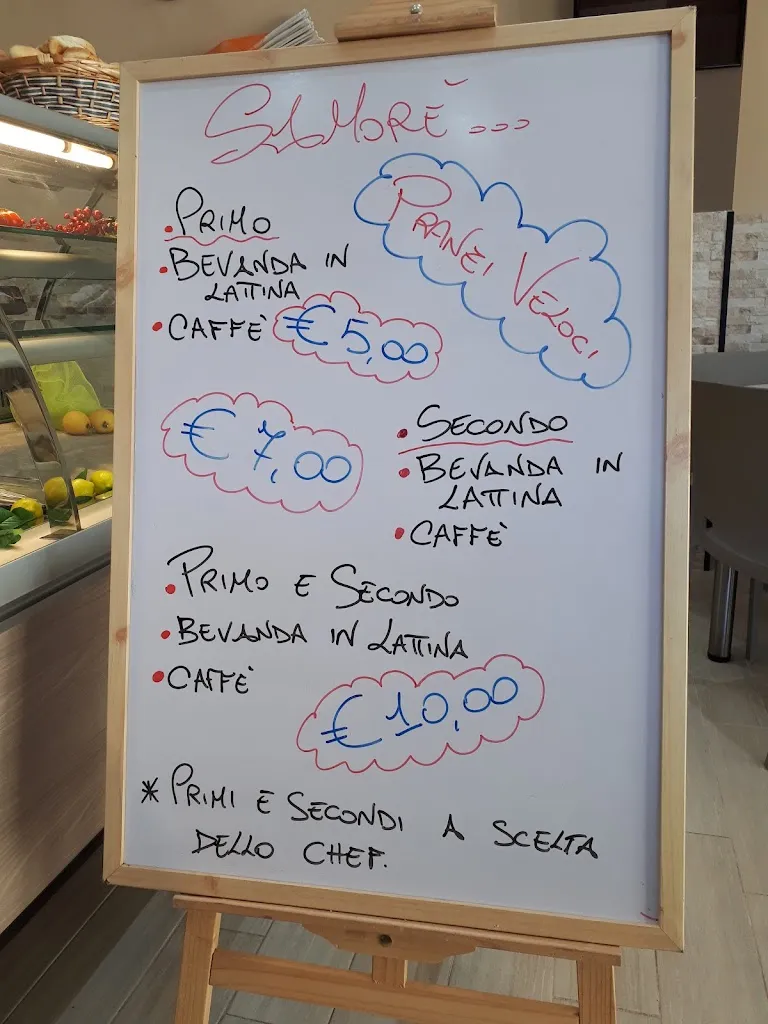 SAMORĚ...
PRANZI VELOCI
PRIMO
BEVANDA IN
LATTINA
CAFFÈ € 5,00
€ 7,00
SECONDO
BEVANDA IN
LATTINA
CAFFÈ
PRIMO E SECONDO
BEVANDA IN LATTINA
CAFFÈ
€ 10,00
* PRIMI E SECONDI A SCELTA
DELLO CHEF.